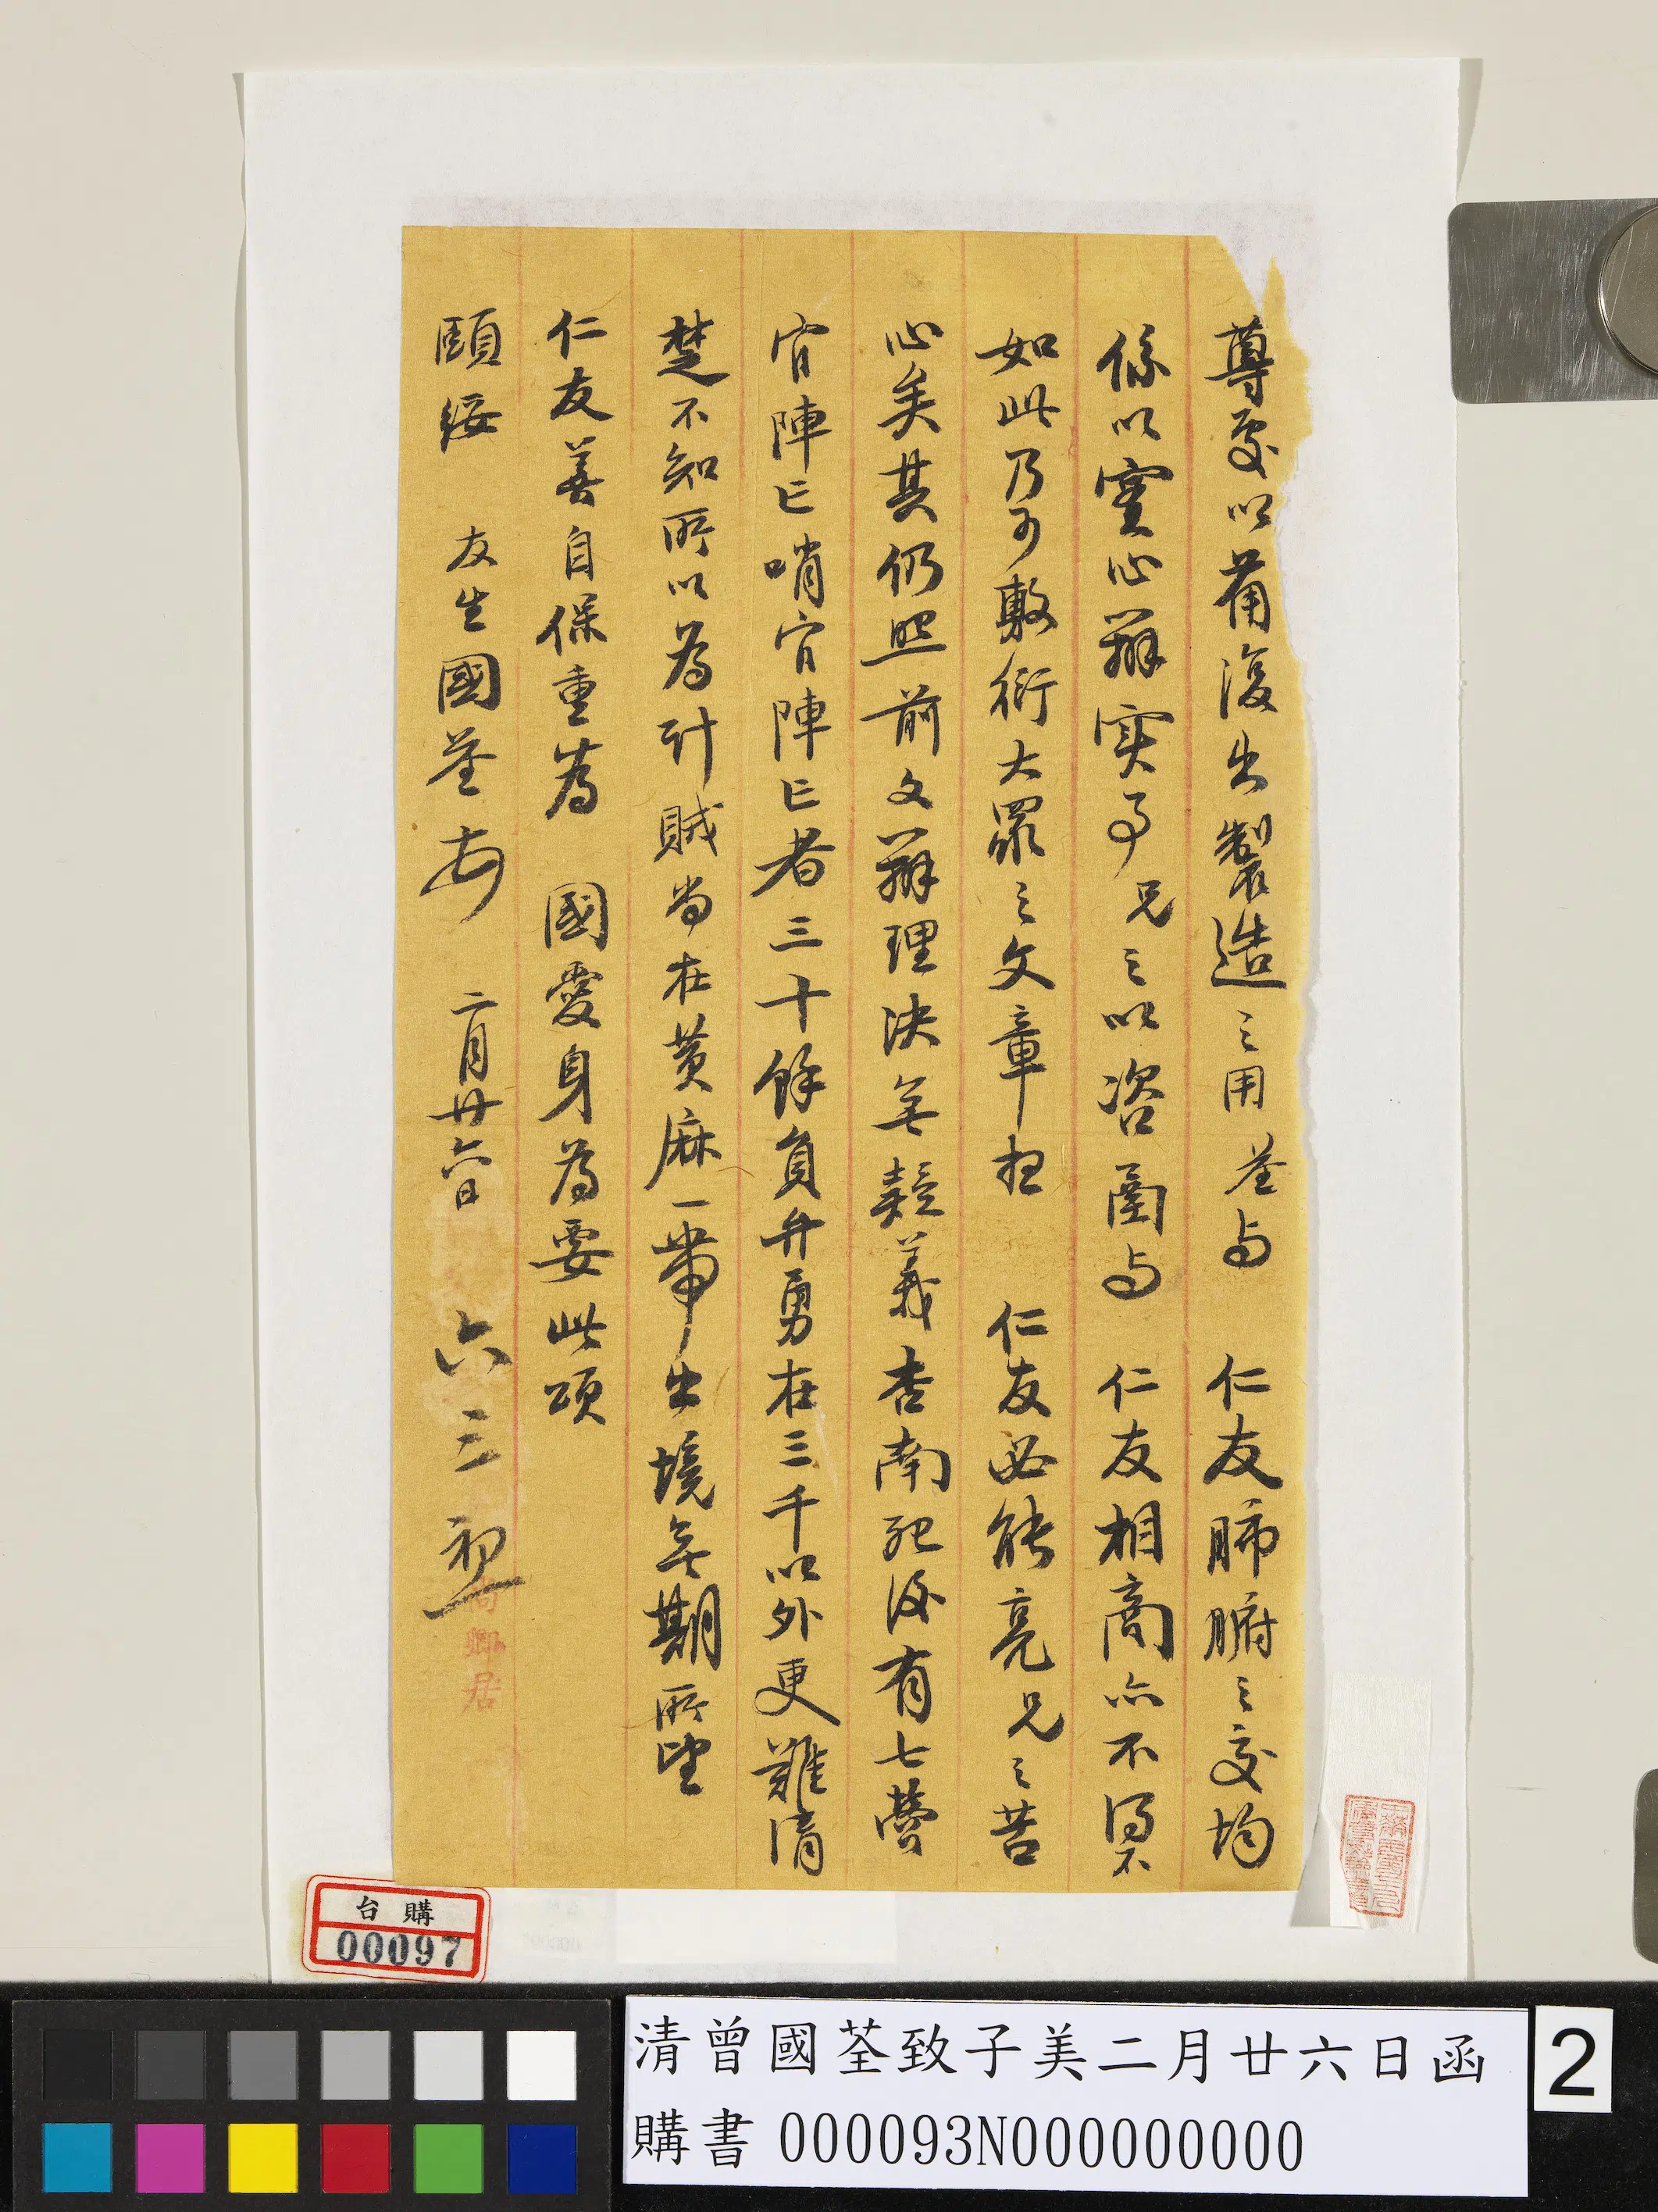 尊處以備復出製造之用荃与　仁友肺腑之交均
係以實心辦實事兄之以咨商与　仁友相商亦不得不
如此乃可敷衍大眾之文章想　仁友必能亮兄之苦
心矣其仍照前文辦理決無疑義杏南死後有七營
官陣亡哨官陣亡者三十餘員弁勇在三千以外更難清
楚不知所以為計賊尚在黃麻一帶出境無期所望
仁友善自保重為　國愛身為要此頌
頤綏　友生國荃頓　二月廿六日　六三初
尚卿居
台購
00097
清曾國荃致子美二月廿六日函
購書 000093N000000000
2